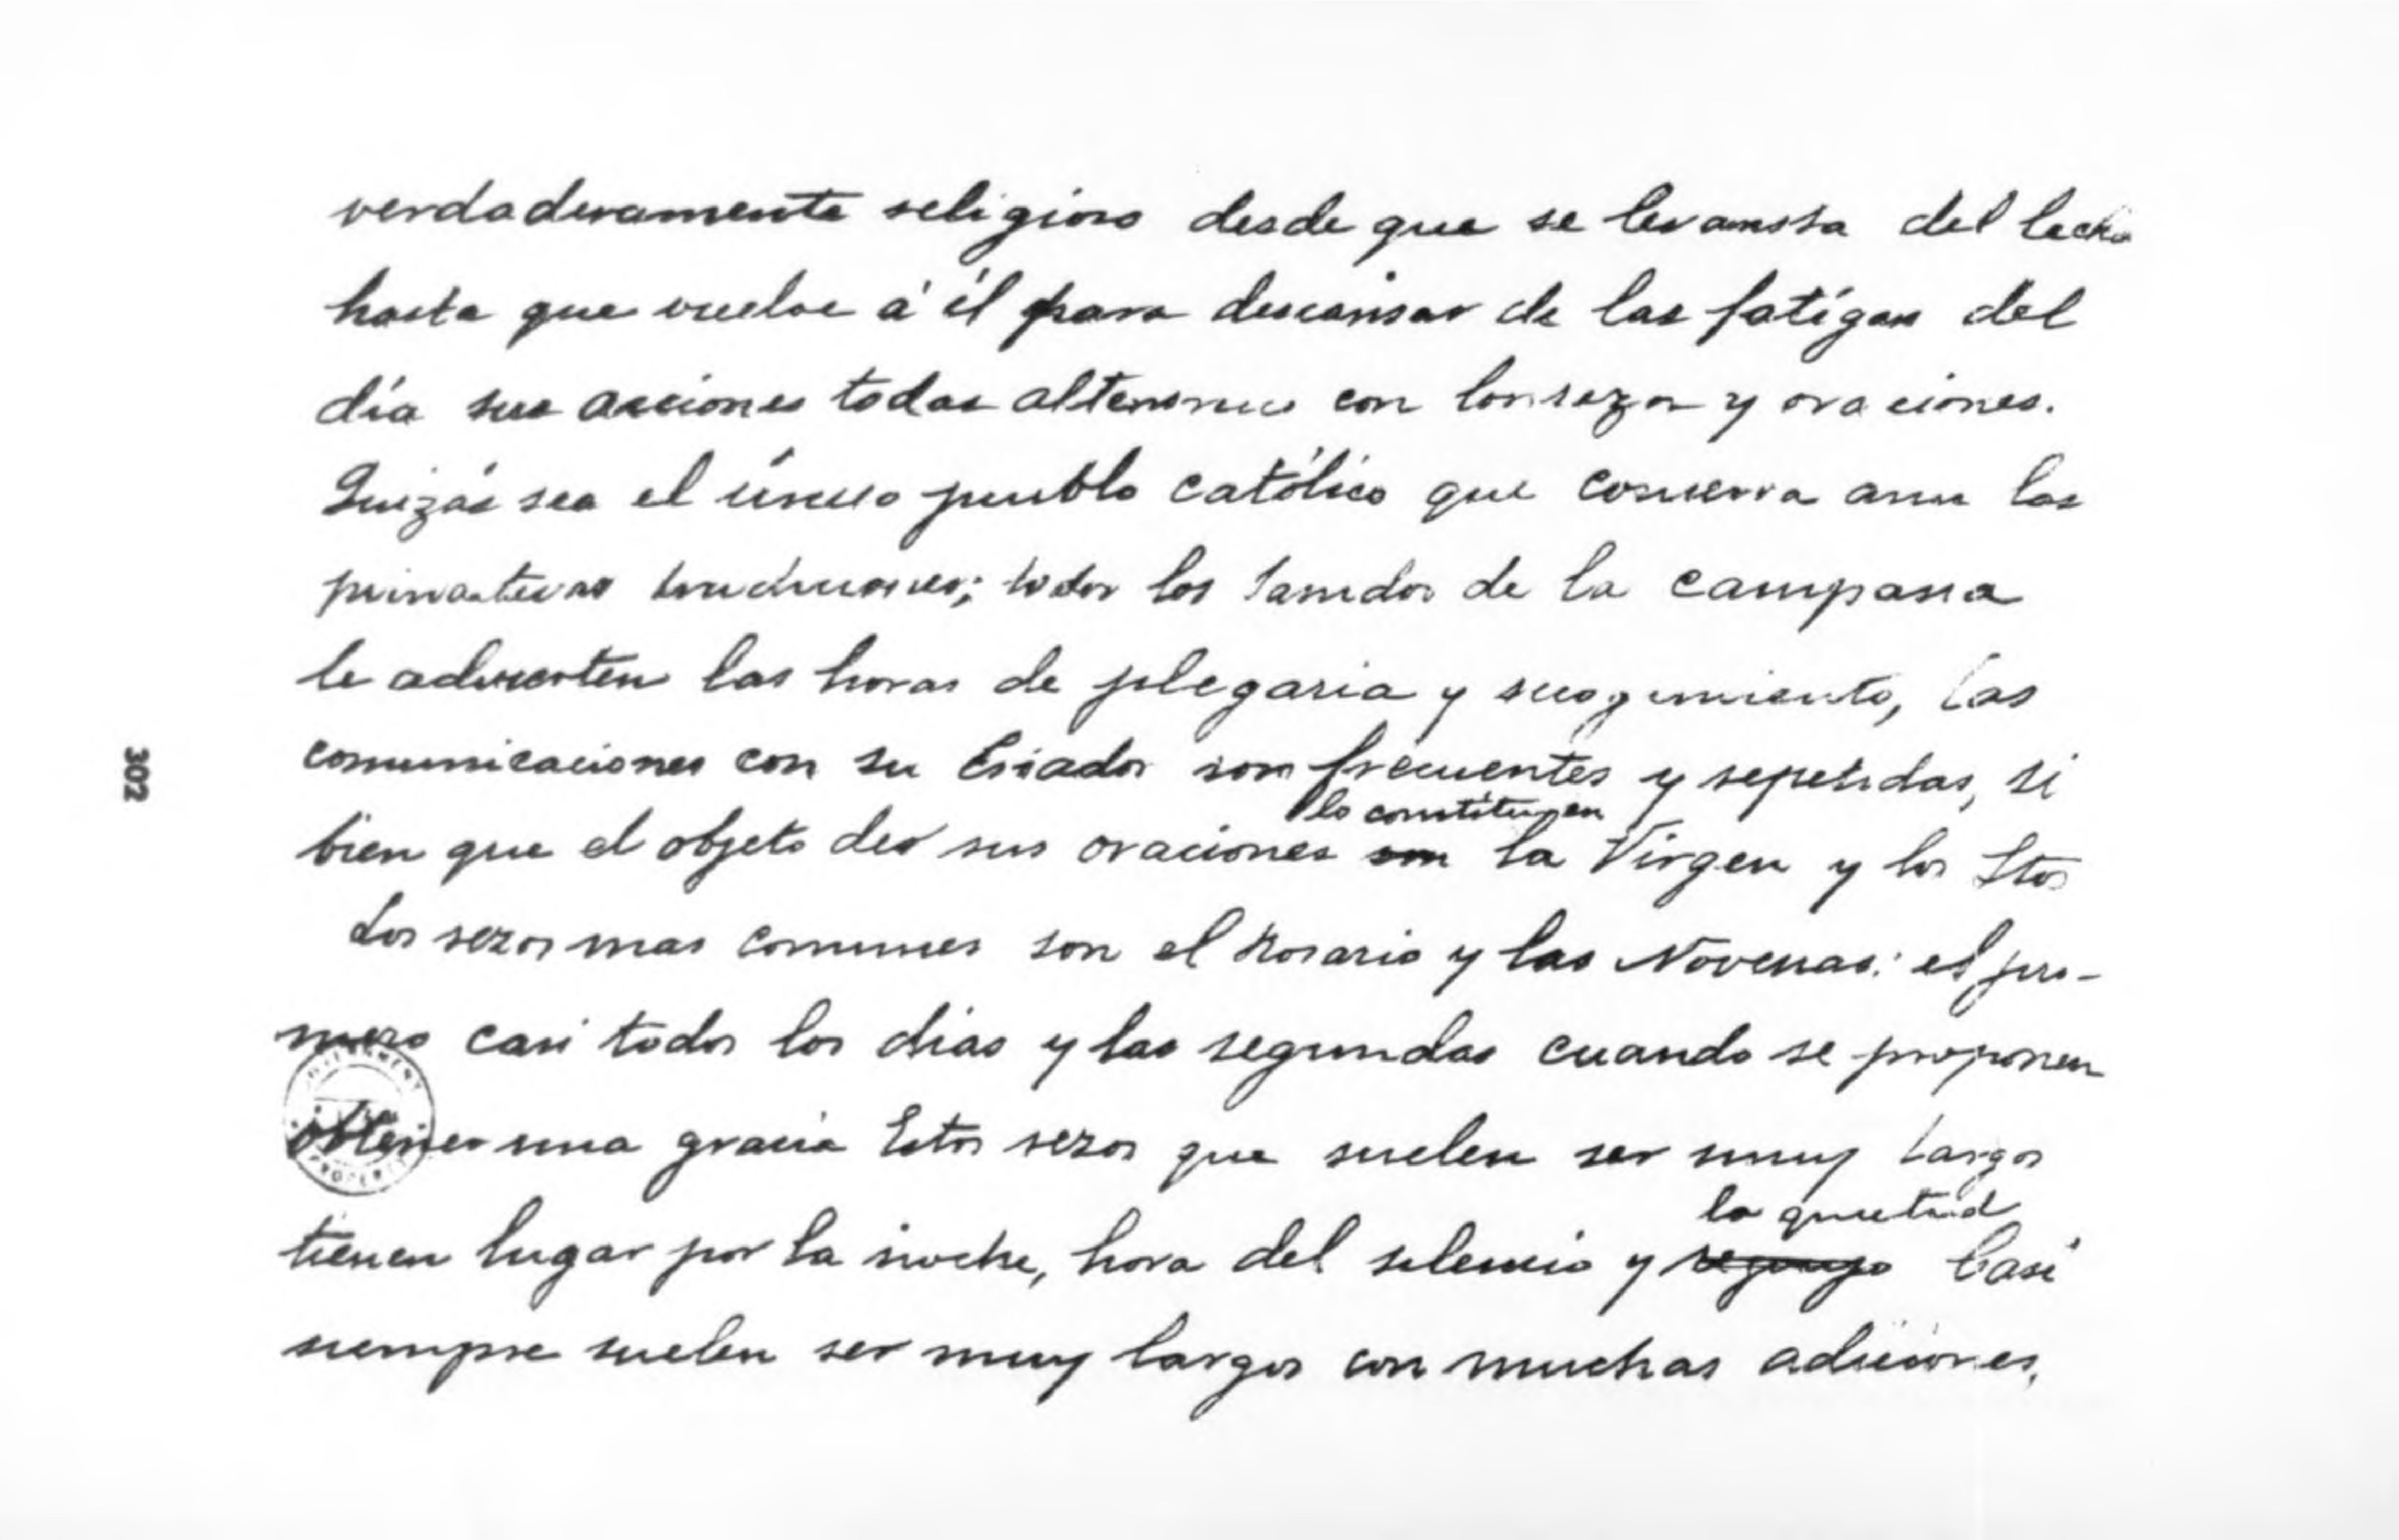 verdaderamente religioso desde que se levansta del lecho
hasta que vuelve á él para descansar de las fatígas del
día sus acciones todas alternan con los rezos y oraciones.
Quizás sea el único pueblo católico que conserva aun las
primitivas tradiciones; todos los tanidos de la campana
le advierten las horas de plegaria y recogimiento, las
comunicaciones con su Criador son frecuentes y repetidas, si
lo constituyen
bien que el objeto de sus oraciones son la Virgen y los Stos
Los rezos mas comunes son el Rosario y las Novenas: el pri-
mero casi todos los dias y las segundas cuando se proponen
obtener una gracia Estos rezos que suelen ser muy largos
la quietud
tienen lugar por la noche, hora del silencio y Casi
siempre suelen ser muy largos con muchas adiciones,
302